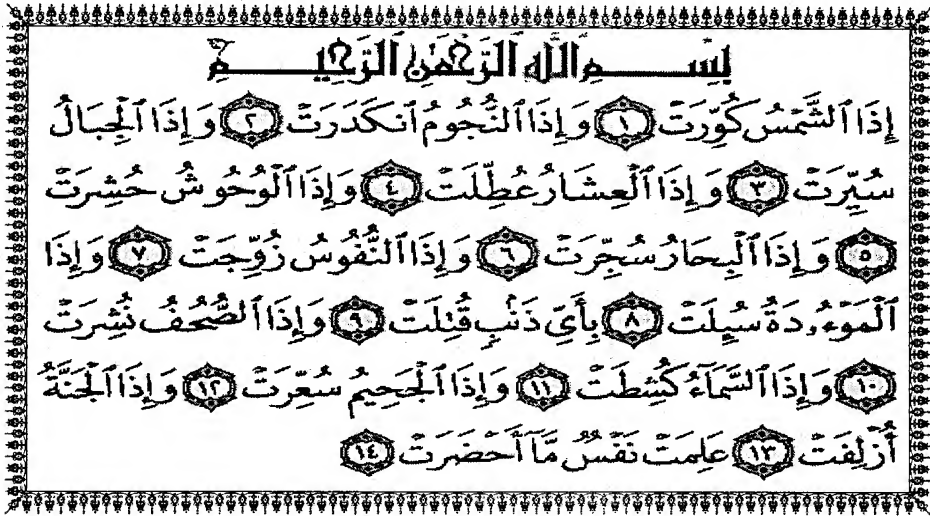 بِسْمِ ٱللَّهِ ٱلرَّحْمَٰنِ ٱلرَّحِيمِ
إِذَا ٱلشَّمْسُ كُوِّرَتْ ١ وَإِذَا ٱلنُّجُومُ ٱنكَدَرَتْ ٢ وَإِذَا ٱلْجِبَالُ
سُيِّرَتْ ٣ وَإِذَا ٱلْعِشَارُ عُطِّلَتْ ٤ وَإِذَا ٱلْوُحُوشُ حُشِرَتْ
٥ وَإِذَا ٱلْبِحَارُ سُجِّرَتْ ٦ وَإِذَا ٱلنُّفُوسُ زُوِّجَتْ ٧ وَإِذَا
ٱلْمَوْءُۥدَةُ سُئِلَتْ ٨ بِأَيِّ ذَنۢبٍ قُتِلَتْ ٩ وَإِذَا ٱلصُّحُفُ نُشِرَتْ
١٠ وَإِذَا ٱلسَّمَآءُ كُشِطَتْ ١١ وَإِذَا ٱلْجَحِيمُ سُعِّرَتْ ١٢ وَإِذَا ٱلْجَنَّةُ
أُزْلِفَتْ ١٣ عَلِمَتْ نَفْسٌ مَّآ أَحْضَرَتْ ١٤